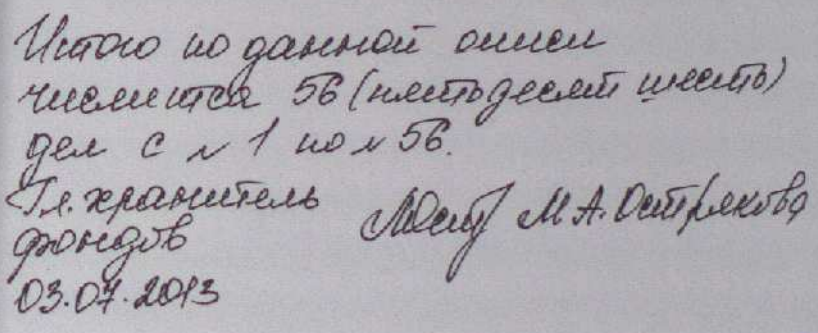 Итого по данной описи
числится 56 (пятьдесят шесть)
дел с № 1 по № 56.
Гл. хранитель
фондов
М.А. Острякова
03.07.2013